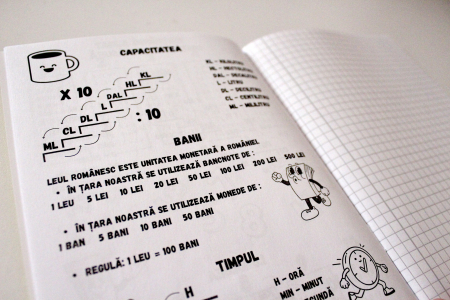 CAPACITATEA
KL
HL
DAL
L
DL
CL
ML
X 10
: 10
KL - KILOLITRU
HL - HECTOLITRU
DAL - DECALITRU
L - LITRU
DL - DECILITRU
CL - CENTILITRU
ML - MILILITRU
BANII
LEUL ROMÂNESC ESTE UNITATEA MONETARĂ A ROMÂNIEI
• ÎN ȚARA NOASTRĂ SE UTILIZEAZĂ BANCNOTE DE :
1 LEU 5 LEI 10 LEI 20 LEI 50 LEI 100 LEI 200 LEI 500 LEI
• ÎN ȚARA NOASTRĂ SE UTILIZEAZĂ MONEDE DE :
1 BAN 5 BANI 10 BANI 50 BANI
• REGULĂ: 1 LEU = 100 BANI
TIMPUL
H
H - ORĂ
MIN - MINUT